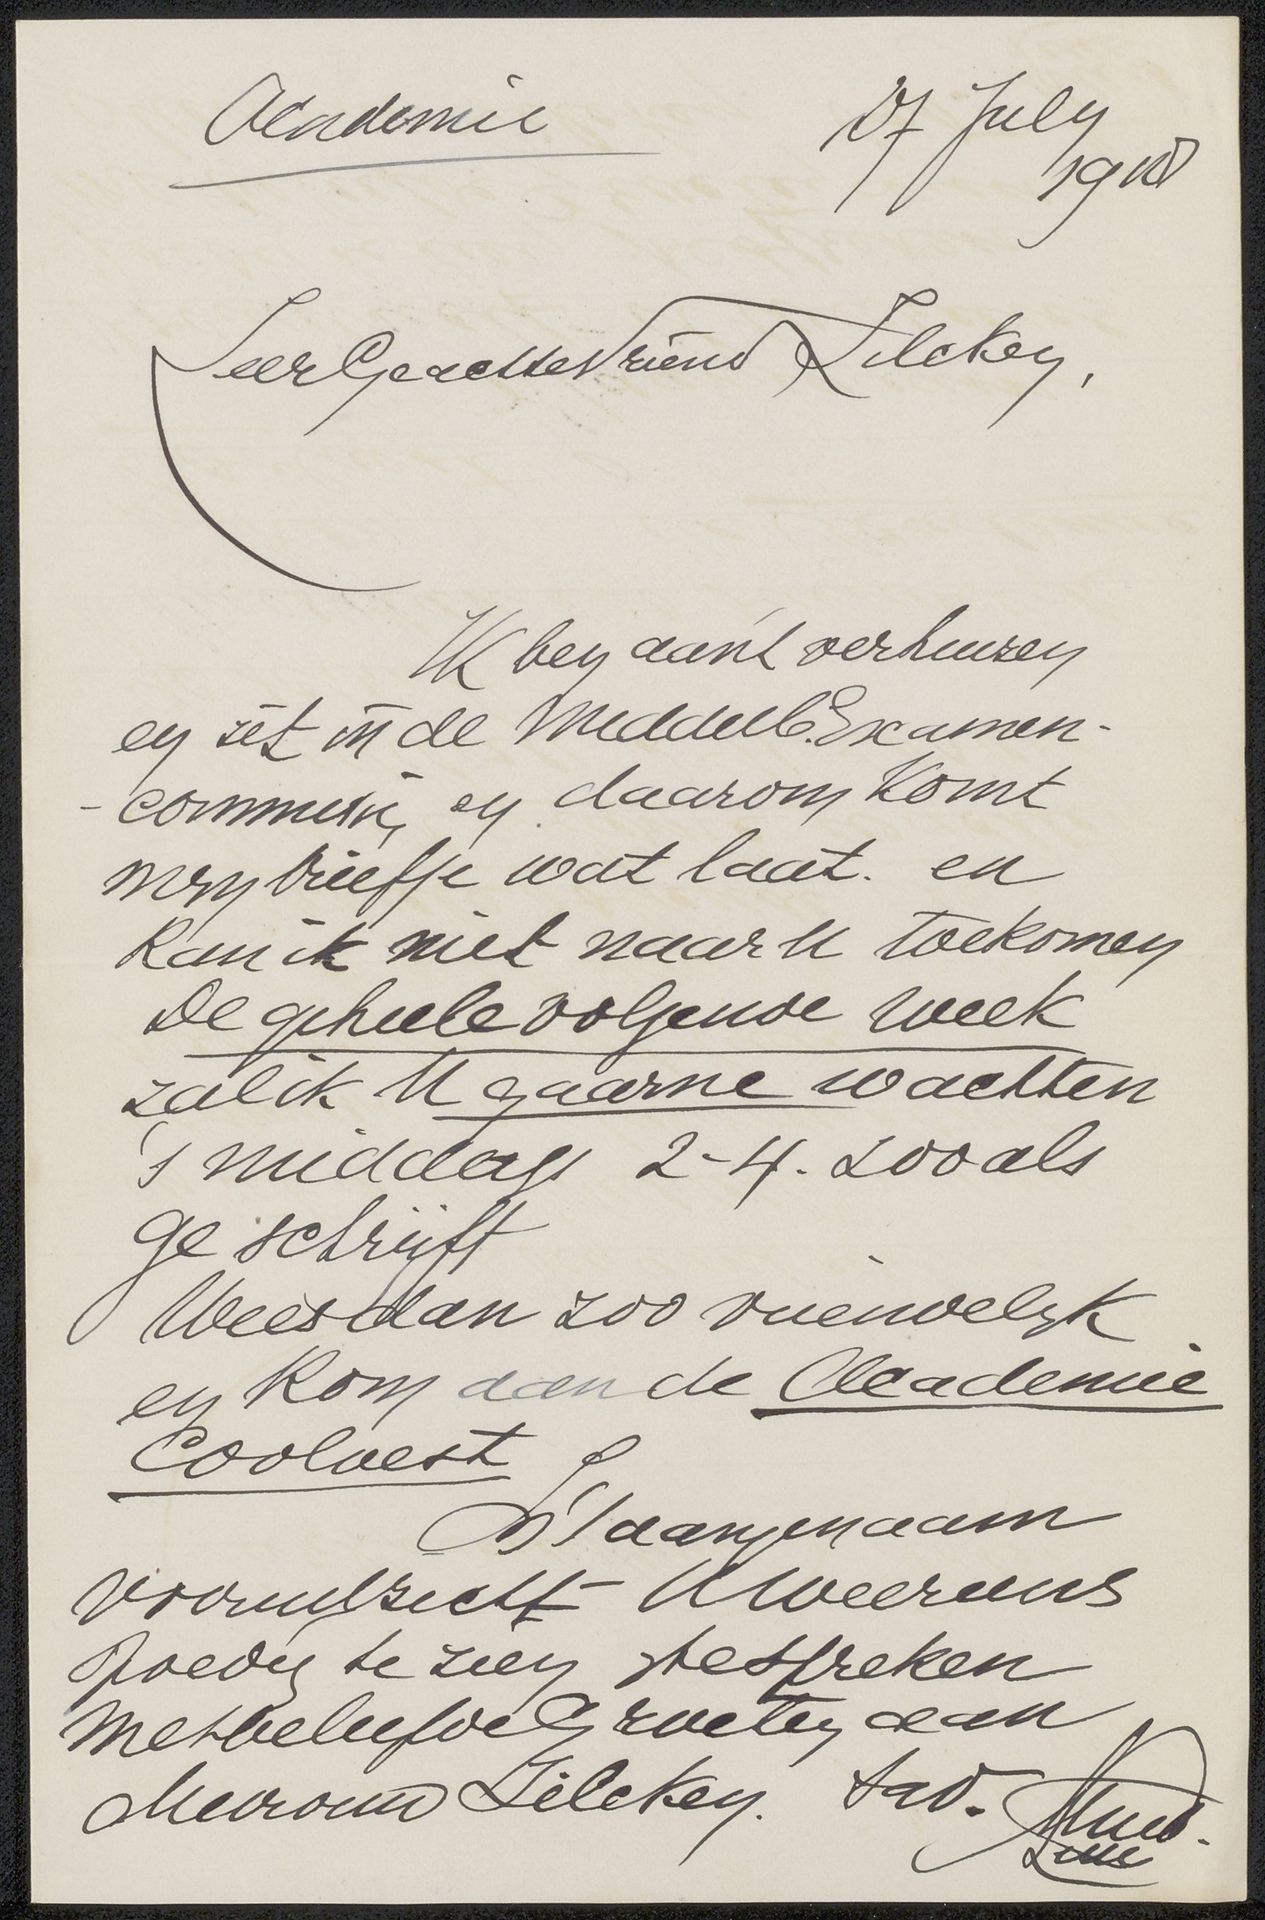 Academie
27 July
1918
Zeer Geachte Vriend Zilcken,
Ik ben aan't verhuizen
en zit in de Middelb. Examen-
- commissie, en daarom komt
mijn briefje wat laat. en
kan ik niet naar U toekomen
De geheele volgende week
zal ik U gaarne wachten
's middags 2-4. zooals
ge schrijft
Wees dan zoo vriendelijk
en kom aan de Academie
Coolvest
In 't aangenaam
vooruitzicht U weer eens
spoedig te zien spreken
met beleefde Groeten aan
Mevrouw Zilcken. tav.